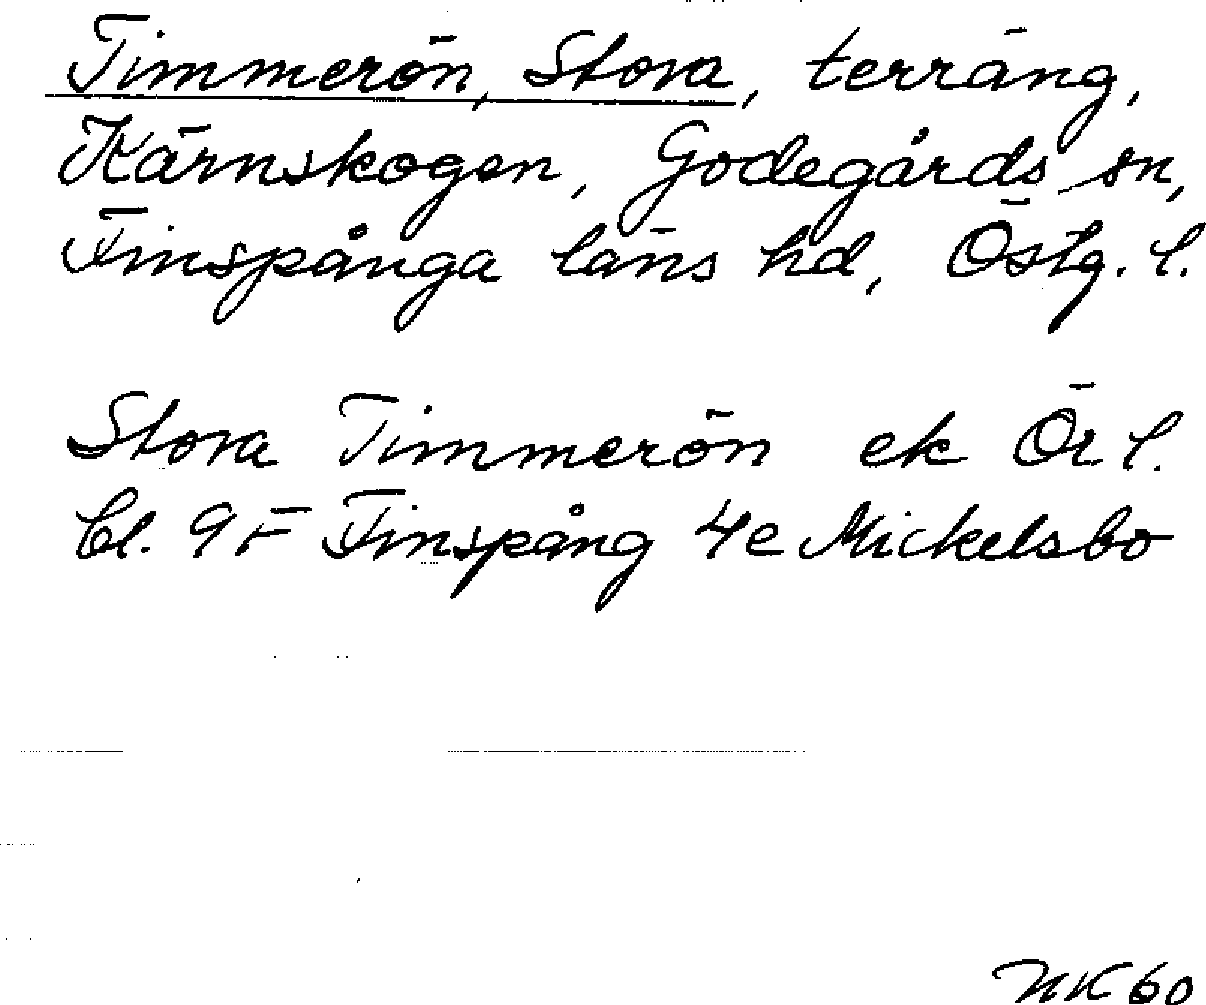 Timmerön, Stora, terräng,
Kärnskogen, Godegårds sn,
Finspånga läns hd, Östg. l.
Stora Timmerön ek Ör l.
bl. 9 F Finspång 4e Mickelsbo
NK 60